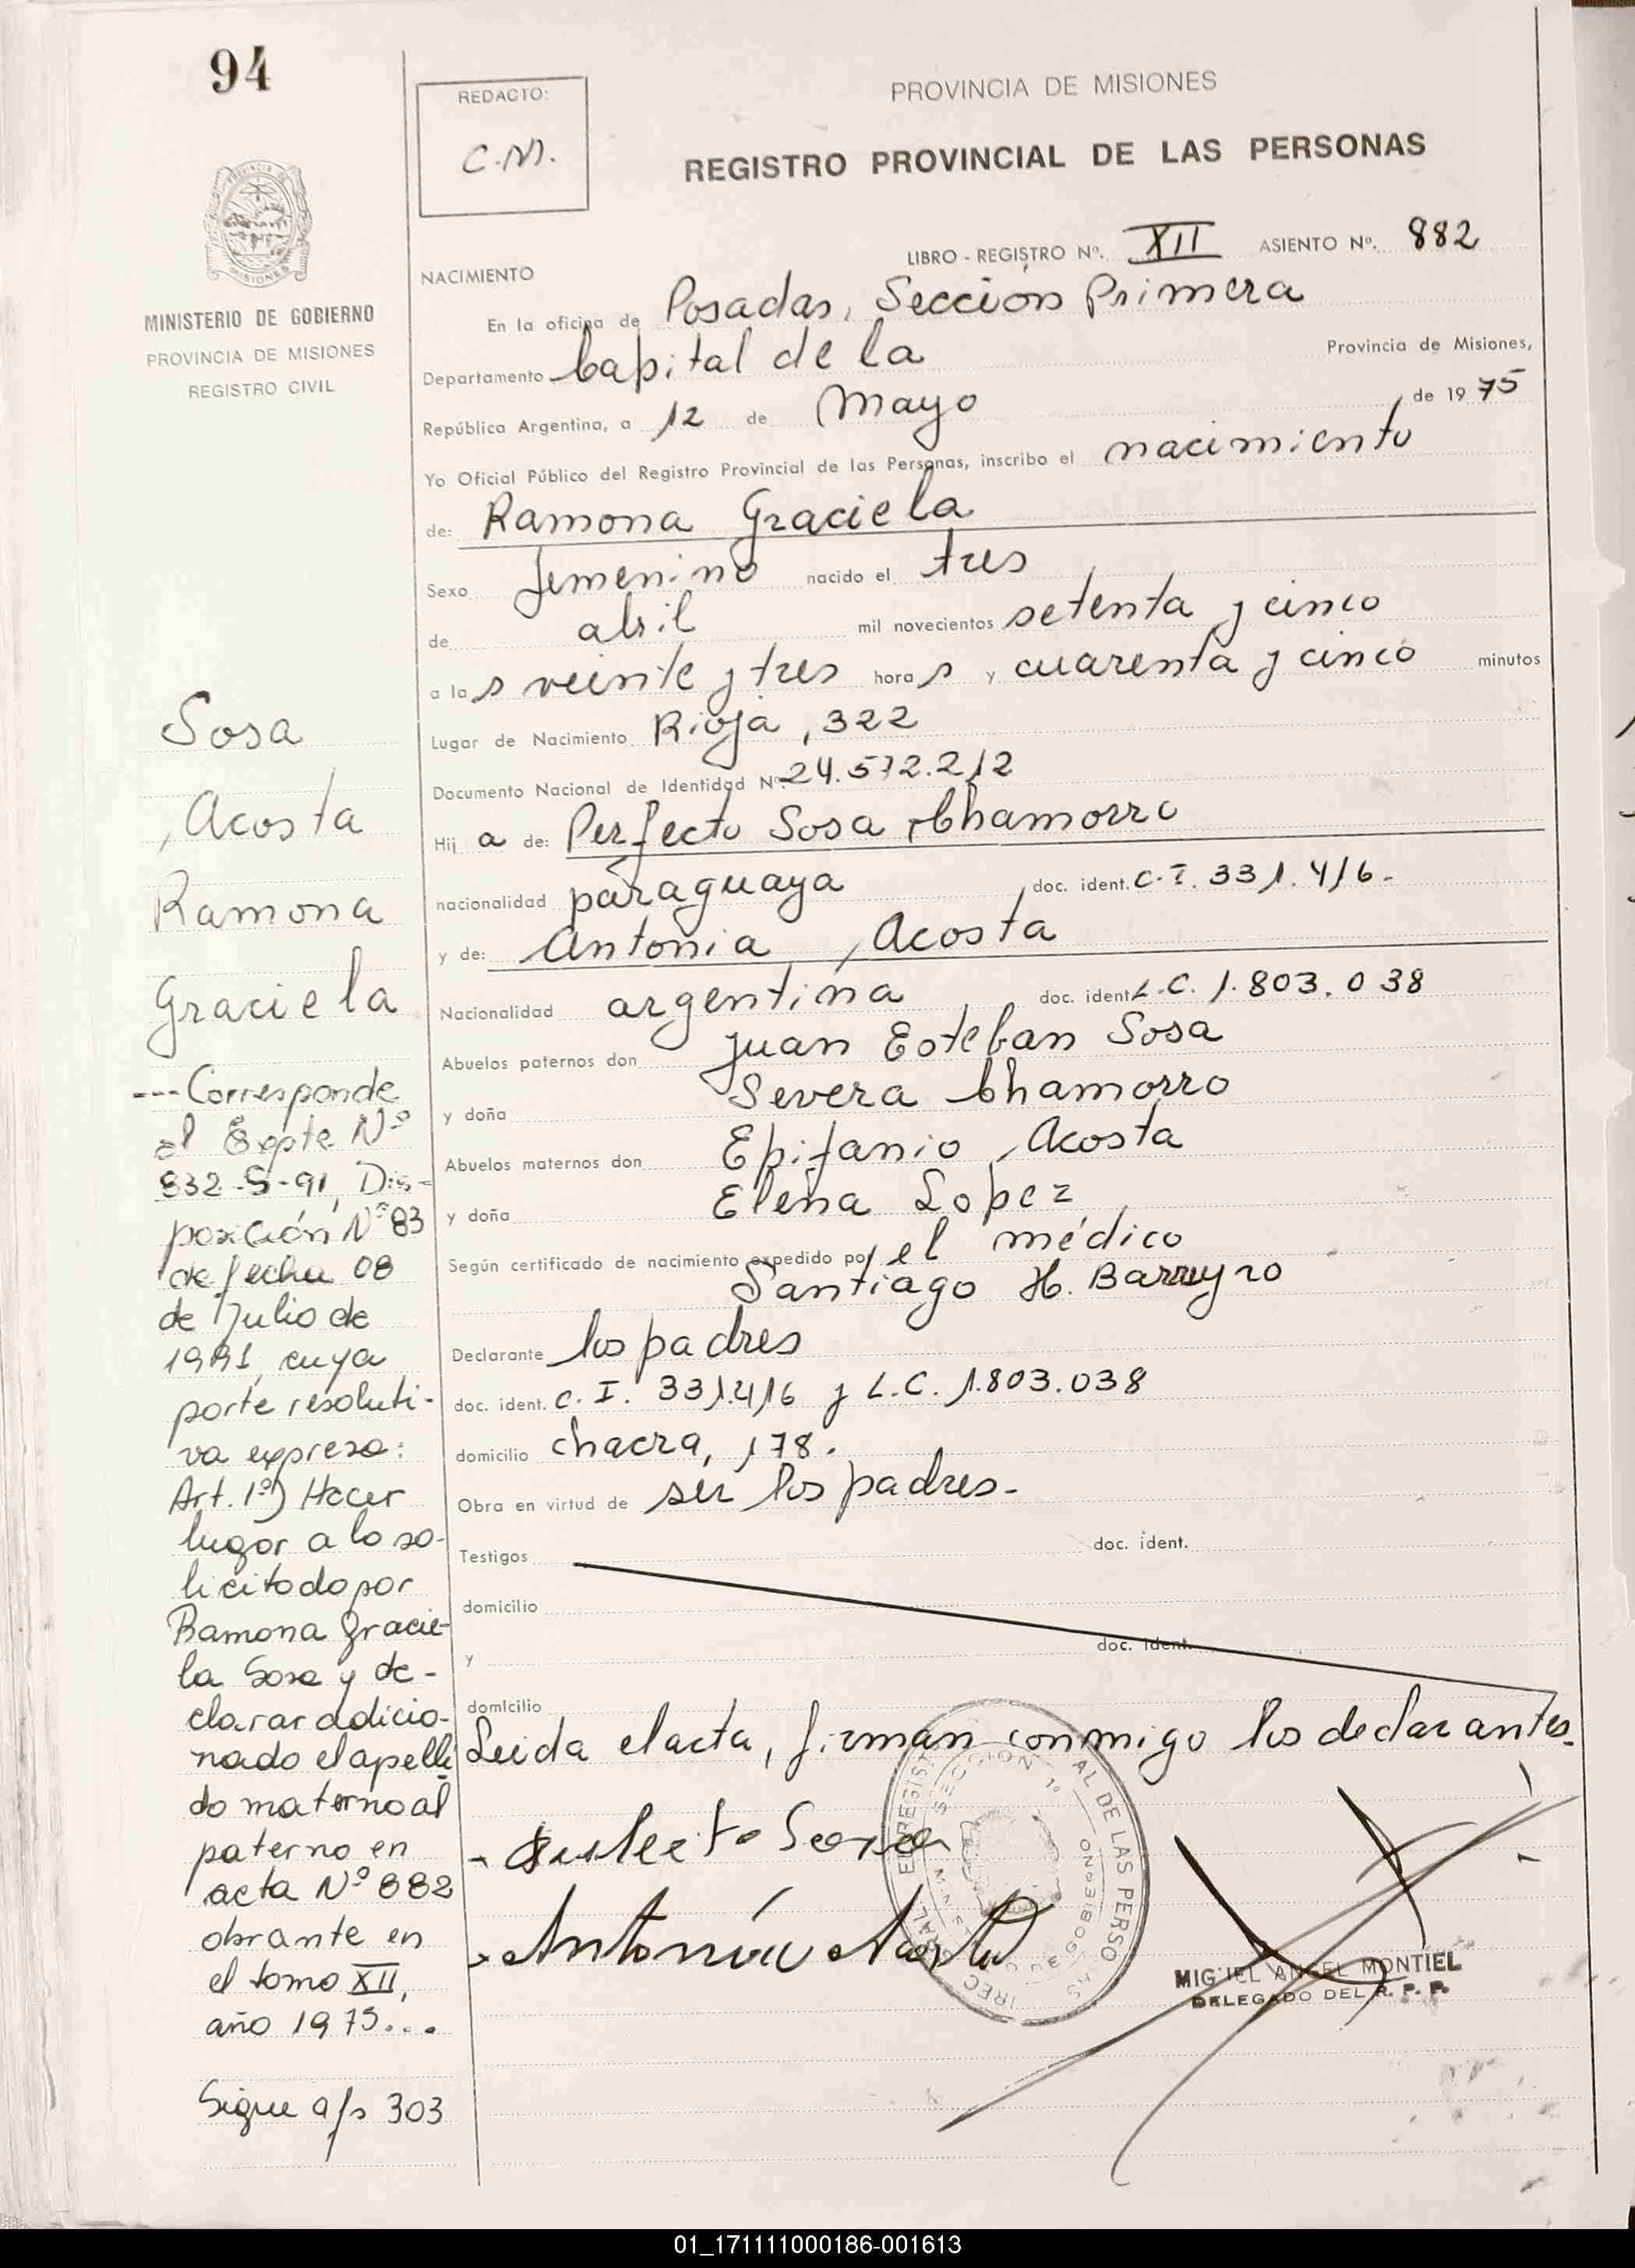 94
REDACTO:
C.M.
PROVINCIA DE MISIONES
REGISTRO PROVINCIAL DE LAS PERSONAS
LIBRO - REGISTRO Nº. XII ASIENTO Nº. 882
MINISTERIO DE GOBIERNO
PROVINCIA DE MISIONES
REGISTRO CIVIL
NACIMIENTO
En la oficina de Posadas, Sección Primera
Departamento Capital de la Provincia de Misiones,
República Argentina, a 12 de Mayo de 1975
Yo Oficial Público del Registro Provincial de las Personas, inscribo el nacimiento
de: Ramona Graciela
Sexo femenino nacido el tres
de abril mil novecientos setenta y cinco
a las veinte y tres horas y cuarenta y cinco minutos
Lugar de Nacimiento Rioja, 322
Documento Nacional de Identidad Nº 24.572.212
Hija de: Perfecto Sosa Chamorro
nacionalidad paraguaya doc. ident. C.I. 331.416.-
y de: Antonia Acosta
Nacionalidad argentina doc. ident L.C. 1.803.038
Abuelos paternos don Juan Esteban Sosa
y doña Severa Chamorro
Abuelos maternos don Epifanio Acosta
y doña Elena Lopez
Según certificado de nacimiento expedido por el médico
Santiago H. Barreyro
Declarante los padres
doc. ident. C.I. 331.416 y L.C. 1.803.038
domicilio chacra, 178.
Obra en virtud de ser los padres.-
Testigos doc. ident.
domicilio
y doc. ident.
domicilio
Leida el acta, firman conmigo los declarantes.
Sosa
Antonia Acosta
SECCION 1º
MIGUEL ANGEL MONTIEL
DELEGADO DEL R. P. P.
Sosa
Acosta
Ramona
Graciela
---Corresponde
al Expte Nº
832-S-91, Dis-
posición Nº 83
de fecha 08
de Julio de
1991, cuya
parte resoluti-
va expresa:
Art. 1º) Hacer
lugar a lo so-
licitado por
Ramona Gracie-
la Sosa y de-
clarar adicio-
nado el apelli
do materno al
paterno en
acta Nº 882
obrante en
el tomo XII,
año 1975...
Sigue a fs 303
01_171111000186-001613